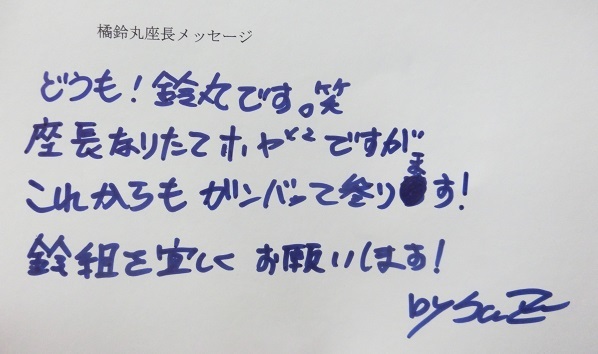 橘鈴丸座長メッセージ
どうも!鈴丸です。笑
座長なりたてホヤ×2ですが
これからもガンバって参ります!
鈴組を宜しくお願いします!
by